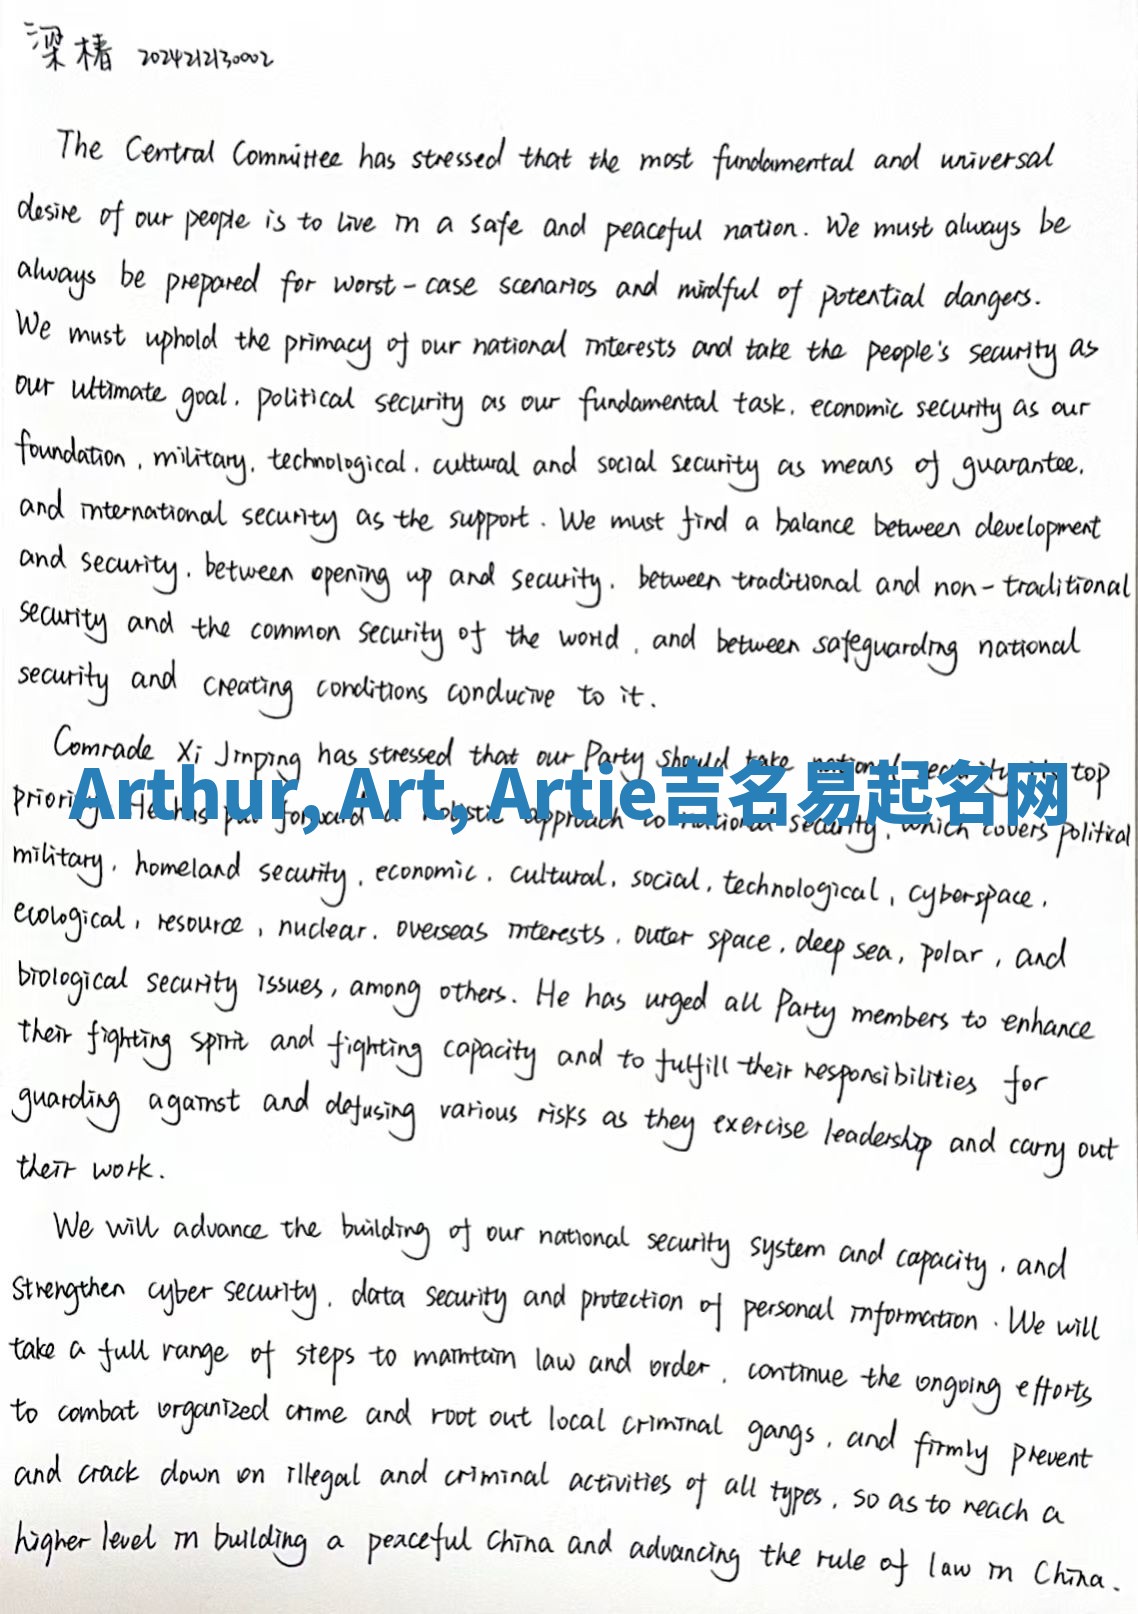 梁椿 2024212130002
The Central Committee has stressed that the most fundamental and universal
desire of our people is to live in a safe and peaceful nation. We must always be
always be prepared for worst-case scenarios and mindful of potential dangers.
We must uphold the primacy of our national interests and take the people's security as
our ultimate goal, political security as our fundamental task, economic security as our
foundation, military, technological, cultural and social security as means of guarantee,
and international security as the support. We must find a balance between development
and security, between opening up and security, between traditional and non-traditional
security and the common security of the world, and between safeguarding national
security and creating conditions conducive to it.
Comrade Xi Jinping has stressed that our Party should take national security its top
Arthur, Art, Artie吉名易起名网
priority. He has put forward a holistic approach to national security, which covers political
military, homeland security, economic, cultural, social, technological, cyberspace,
ecological, resource, nuclear, overseas interests, outer space, deep sea, polar, and
biological security issues, among others. He has urged all Party members to enhance
their fighting spirit and fighting capacity and to fulfill their responsibilities for
guarding against and defusing various risks as they exercise leadership and carry out
their work.
We will advance the building of our national security system and capacity, and
strengthen cyber security, data security and protection of personal information. We will
take a full range of steps to maintain law and order, continue the ongoing efforts
to combat organized crime and root out local criminal gangs, and firmly prevent
and crack down on illegal and criminal activities of all types, so as to reach a
higher level in building a peaceful China and advancing the rule of law in China.